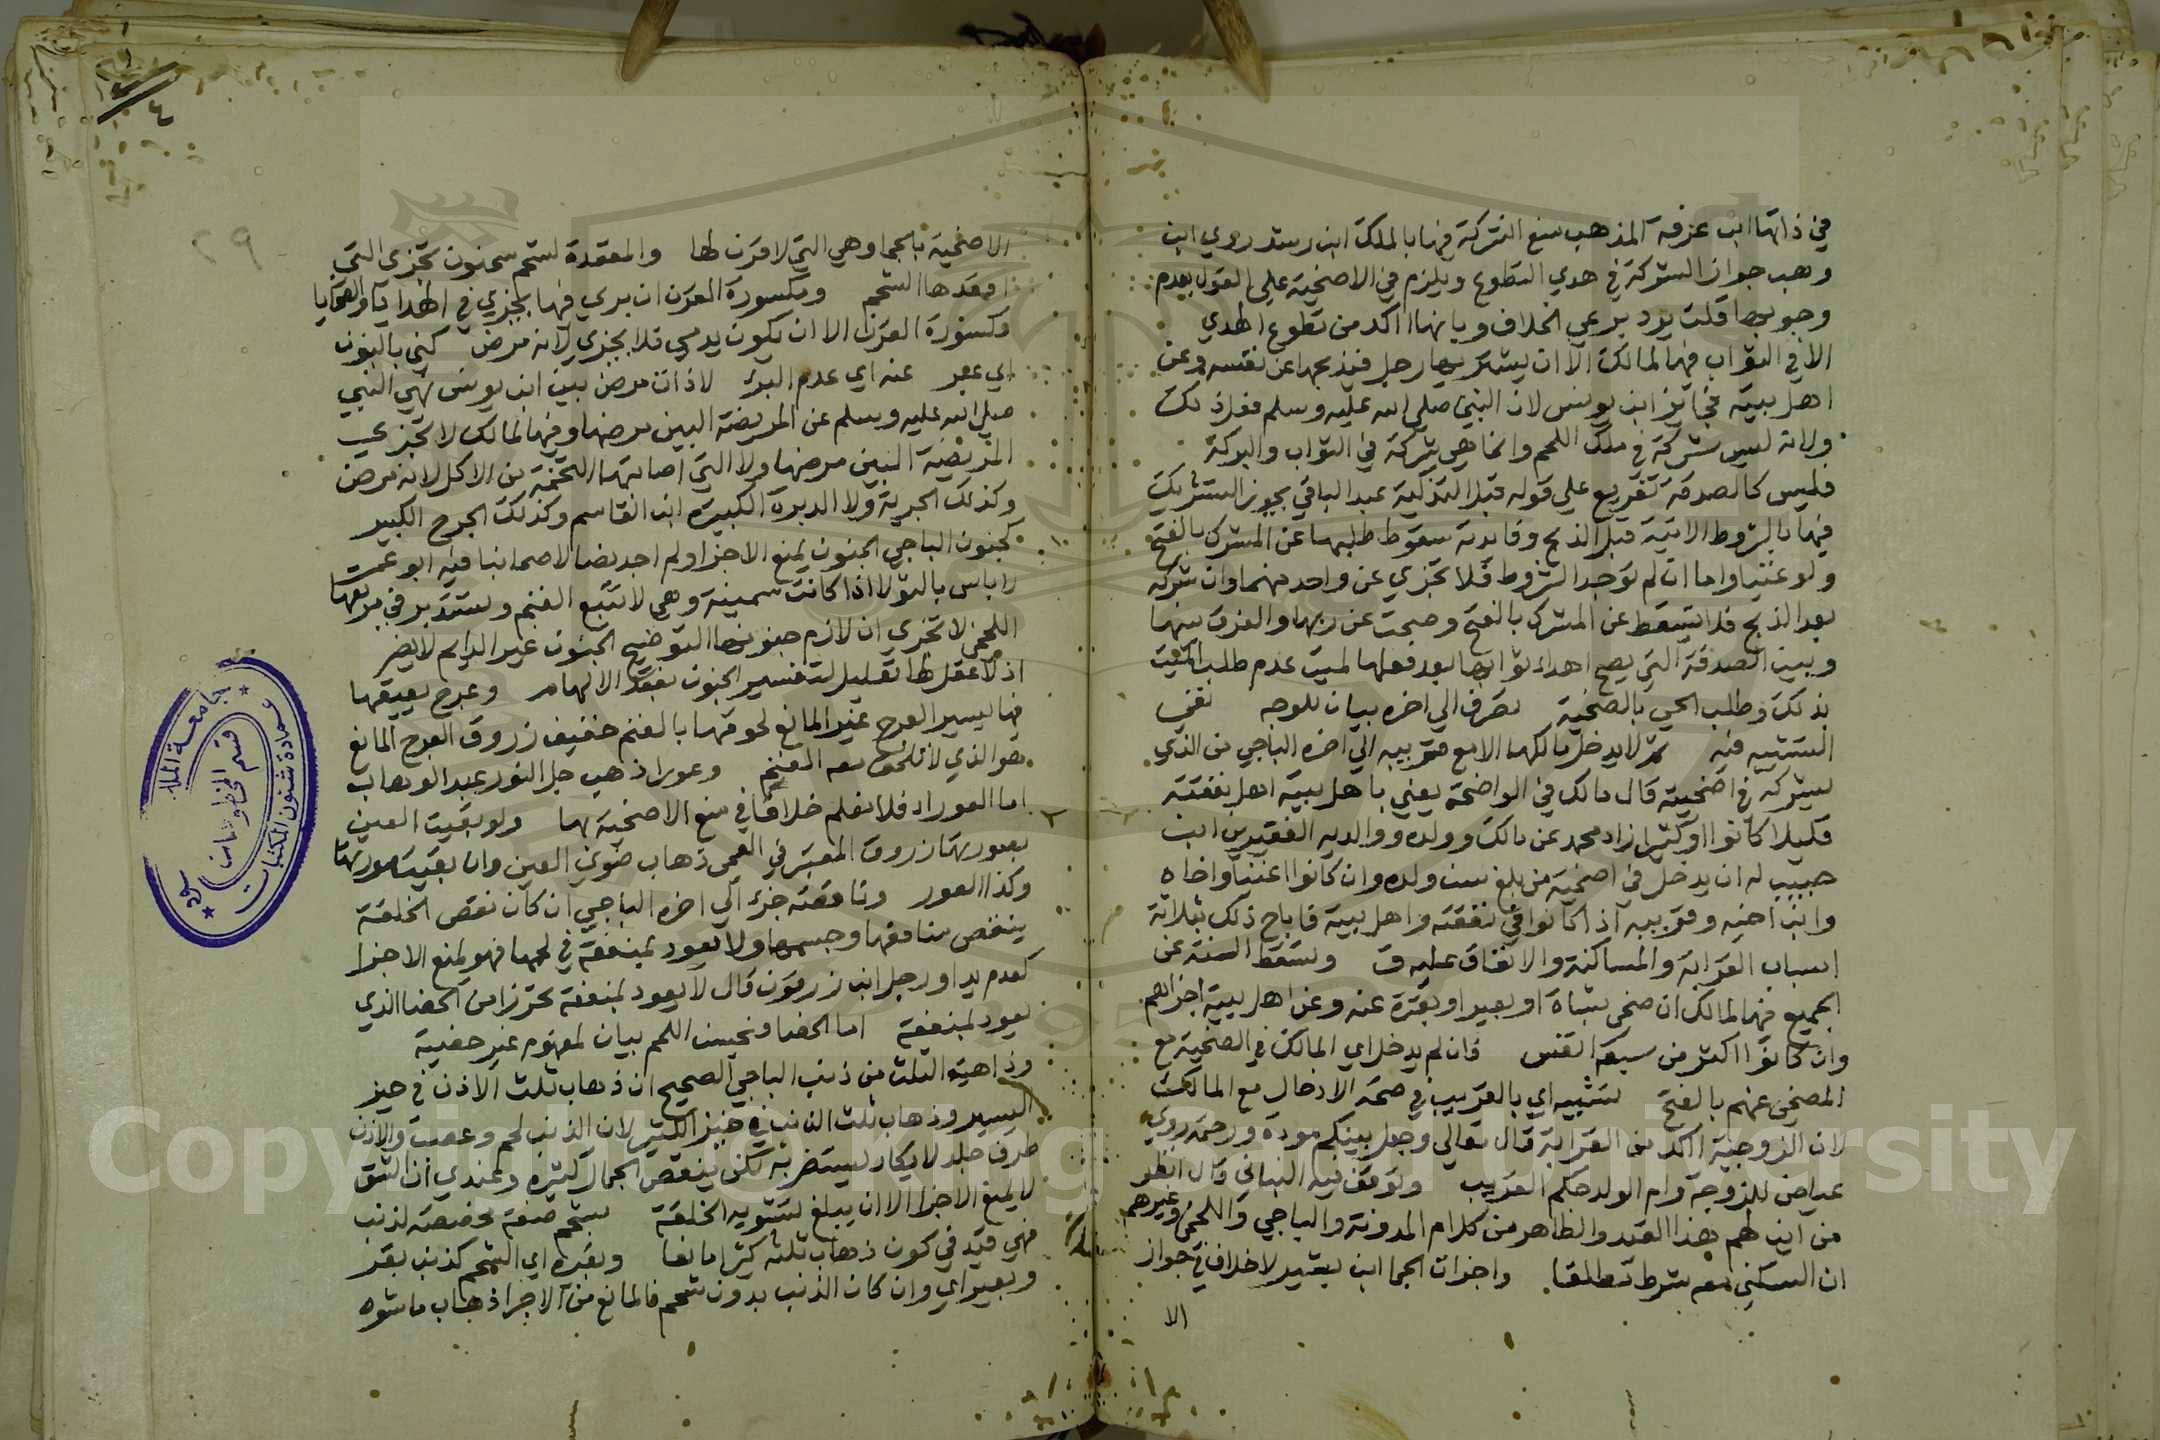 في ذاتها ابن عرفة المذهب منع الشركة فيها بالملك ابن رشد روي ابن
وهب جواز الشركة في هدي التطوع ويلزم في الاضحية علي القول بعدم
وجوبها قلت يرد برعي الخلاف وبانها اكد من تطوع الهدي
الا في الثواب فيها لمالك الا ان يشتريها رجل فيذبحها عن نفسه وعن
اهل بيته فجائز ابن يونس لان النبي صلي الله عليه وسلم فعل ذلك
ولانه ليس شركة في ملك اللحم وانما هي شركة في الثواب والبركة
فليس كالصدقة تفريع علي قوله قبل التذكية عبد الباقي يجوز التشريك
فيها بالشروط الاتية قبل الذبح وفايدته سقوط طلبها عن المشرك بالفتح
ولو غنيا واما ان لم توجد الشروط فلا تجزي عن واحد منهما وان شركه
بعد الذبح فلا تسقط عن المشرك بالفتح وصحت عن ربها والفرق بينهما
وبين الصدقة التي يصح اهداء ثوابها بعد فعلها لميت عدم طلب الميت
بذلك وطلب الحي بالضحية تصرف الي اخره بيان للوجه نفي
التشبيه فيه ثم لا يدخل مالكها الا مع قريبه الي اخره الباجي من الذي
يشركه في اضحيته قال مالك في الواضحة يعني باهل بيته اهل نفقته
قليلا كانوا او كثيرا زاد محمد عن مالك وولده ووالديه الفقيرين ابن
حبيب له ان يدخل في اضحيته من بلغ من ولده وان كانوا اغنيا واخاه
وابن اخيه وقريبه اذا كانوا في نفقته واهل بيته فاباح ذلك بثلاثة
اسباب القرابة والمساكنة والانفاق عليه ق وتسقط السنة عن
الجميع فيها لمالك ان ضحي بشاة او بعير او بقرة عنه وعن اهل بيته اجزاهم
وان كانوا اكثر من سبعة انفس فان لم يدخل اي المالك في الضحية مع
المضحي عنهم بالفتح تشبيه اي بالقريب في صحة الادخال مع المالك
لان الزوجية اكد من القرابة قال تعالي وجعل بينكم مودة ورحمة روي
عياض للزوجة وام الولد حكم القريب وتوقف فيه البناني قال انظر
من اين لهم هذا القيد والظاهر من كلام المدونة والباجي واللخمي وغيرهم
ان السكني معه شرط مطلقا واجزات الجما ابن بشير لا خلاف في جواز
الا
٢٩
الاضحية بالجما وهي التي لا قرن لها والمقعدة لشحم سحنون تجزي التي
اقعدها الشحم ومكسورة القرن ان بري فيها يجزي في الهدايا والضحايا
مكسورة القرن الا ان يكون يدمي فلا يجزي لانه مرض كني بالبنون
اي عبر عنه اي عدم البرء لا ذات مرض بين ابن يونس نهي النبي
صلي الله عليه وسلم عن المريضة البين مرضها وفيها لمالك لا تجزي
المريضة البين مرضها ولا التي اصابتها التخمة من الاكل لانه مرض
وكذلك الجربة ولا الدبرة الكبيرة ابن القاسم وكذلك الجرح الكبير
كجنون الباجي الجنون يمنع الاجزا ولم اجد نصا لاصحابنا فيه ابو عمر
لا باس بالثولا اذا كانت سمينة وهي لا تتبع الغنم وتستدير في مرتعها
اللخمي لا تجزي ان لازم جنونها التوضيح الجنون غير الدايم لا يضر
اذ لا عقل لها تعليل لتفسير الجنون بفقد الالهام وعرج يعيقها
فيها ليسير العرج غير المانع لحوقها بالغنم خفيف زروق العرج المانع
هو الذي لا تلحق معه الغنم وعور اذهب جل النور عبد الوهاب
اما العوراء فلا نعلم خلافا في منع الاضحية بها ولو بقيت العين
بصورتها زروق المعتبر في العمي ذهاب ضوي العين وان بقيت صورتها
وكذا العور وناقصة جزء الي اخره الباجي ان كان نقص الخلقة
ينقص منافعها وجسمها ولا يعود بمنفعة في لحمها فهو يمنع الاجزا
كعدم يد او رجل ابن زرقون قال لا يعود بمنفعة تحرزا من الخصا الذي
يعود بمنفعة اما الخصا فتحسن اللحم بيان لمفهوم غير خصية
وذاهبة الثلث من ذنب الباجي الصحيح ان ذهاب ثلث الاذن في حيز
اليسير وذهاب ثلث الذنب في حيز الكثير لان الذنب لحم وعصب والاذن
طرف جلد لا يكاد يستضر به لكن ينقص الجمال كثيره وعندي ان الشق
لا يمنع الاجزا الا ان يبلغ تشويه الخلقة بشحم صفة مخصصة لذنب
فهي قيد في كون ذهاب ثلثه كثيرا مانعا وبغيره اي الشحم كذنب بقر
وبعير اي وان كان الذنب بدون شحم فالمانع من الاجزا ذهاب ما شوه
جامعة الملك سعود
عمادة شئون المكتبات
قسم المخطوطات
Copyright © King Saud University